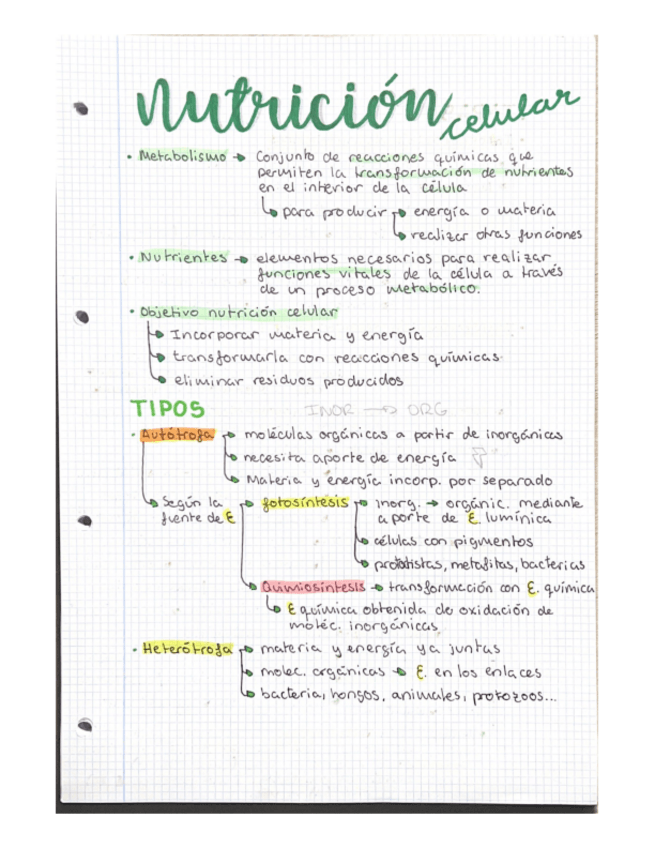 Nutrición celular
• Metabolismo → Conjunto de reacciones químicas que
permiten la transformación de nutrientes
en el interior de la célula
→ para producir → energía o materia
→ realizar otras funciones
• Nutrientes → elementos necesarios para realizar
funciones vitales de la célula a través
de un proceso metabólico.
• Objetivo nutrición celular
→ Incorporar materia y energía
→ transformarla con reacciones químicas
→ eliminar residuos producidos
TIPOS INOR → ORG
• Autótrofa → moléculas orgánicas a partir de inorgánicas
→ necesita aporte de energía
→ Materia y energía incorp. por separado
→ Según la → fotosíntesis → inorg. → orgánic. mediante
fuente de E aporte de E. lumínica
→ células con pigmentos
→ protoctistas, metafitas, bacterias
→ Quimiosíntesis → transformación con E. química
→ E química obtenida de oxidación de
moléc. inorgánicas
• Heterótrofa → materia y energía ya juntas
→ molec. orgánicas → E. en los enlaces
→ bacteria, hongos, animales, protozoos...